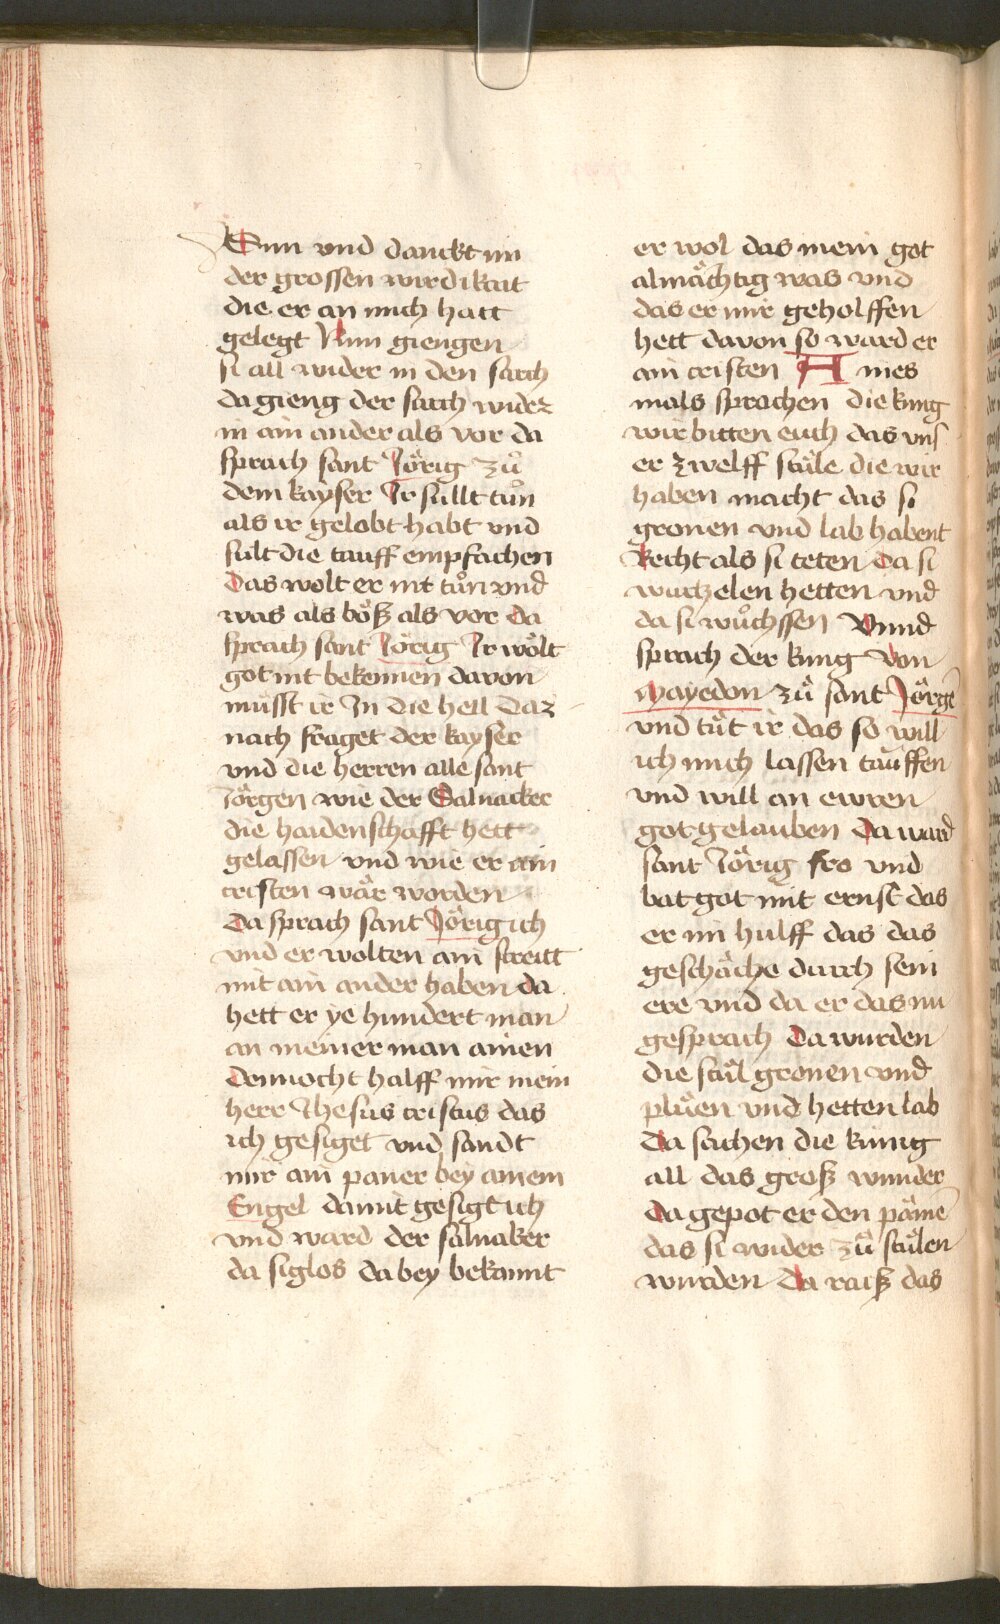 Sun vnd danckt im
der grossen wirdikait
die er an mich hatt
gelegt Nun giengen
si all wider in den sarch
da gieng der sarch wider
in ain ander als vor da
sprach sant Jörig zů
dem kayser Ir sullt tůn
als ir gelobt habt vnd
sult die tauff empfachen
Das wolt er nit tůn vnd
was als böß als vor Da
sprach sant Jörig Ir wölt
got nit bekennen davon
müsst ir In die hell Daz
nach fraget der kayser
vnd die herren alle sant
Jörgen wie der Salnacker
die haidenschafft hett
gelassen vnd wie er ain
cristen wär worden
Da sprach sant Jörig ich
vnd er wolten ain streitt
mit ain ander haben da
hett er ye hundert man
an meiner man ainen
Dennocht halff mir mein
herr Jhesus cristus das
ich gesiget vnd sandt
mir ain paner bey ainem
Engel damit gesigt ich
vnd ward der salnaker
da siglos da bey bekannt
er wol das mein got
almächtig was vnd
das er mir geholffen
hett davon so ward er
ain cristen A ines
mals sprachen die kung
wir bitten euch das vns
er zwelff stüle die wir
haben macht das si
gronen vnd lab habent
Recht als si teten Da si
wurtzelen hetten vnd
da si wůchssen Vnnd
sprach der kung von
Mayedon zů sant Jörgē
vnd tüt ir das so will
ich mich lassen tauffen
vnd will an ewren
got gelauben Da ward
sant Jörig fro vnd
bat got mit ernst das
er im hulff das das
geschäche durch sein
ere vnd da er das nu
gesprach Da wurden
die stül gronen vnd
plüen vnd hetten lab
Da sachen die künig
all das groß wunder
Da gepot er den pämē
das si wider zů stülen
wurden Da raiß das